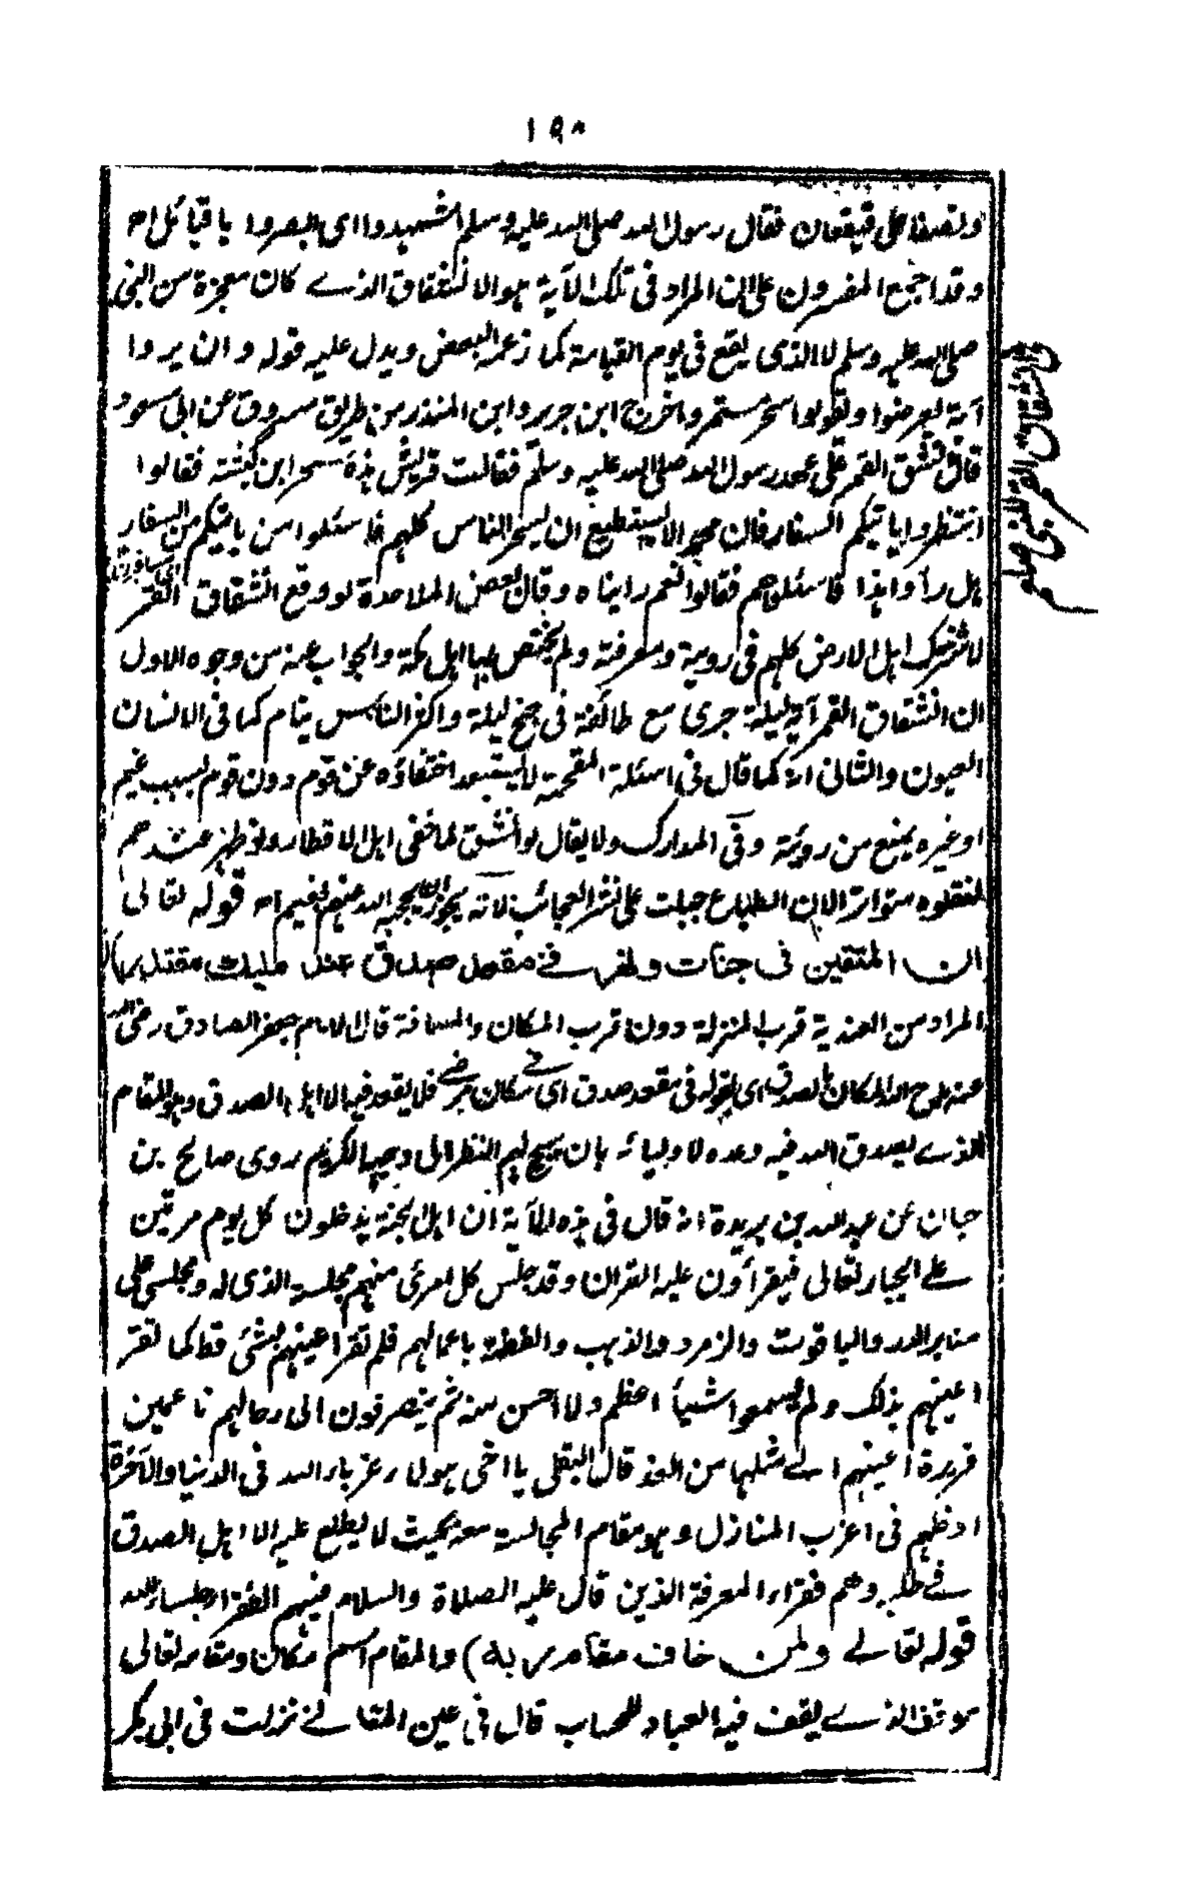 ١٩٨
ونصفا على قيقعان فقال رسول الله صلى الله عليه وسلم اشهدوا اى ابصروا يا قبائل اه
وقد اجمع المفسرون على ان المراد فى تلك الآية هو الانشقاق الذے كان معجزة من النبى
صلى الله عليه وسلم لا الذى يقع فى يوم القيامة كما زعمه البعض ويدل عليه قوله وان يروا
آية يعرضوا ويقولوا سحر مستمر واخرج ابن جرير وابن المنذر من طريق مسروق عن ابى مسعود
قال انشق القمر على عهد رسول الله صلى الله عليه وسلم فقالت قريش هذه سحر ابن كبشة فقالوا
انتظروا ياتيكم السفار فان محمدا لا يستطيع ان يسحر الناس كلهم فاسئلوا من ياتيكم من السفار
هل رأوا هذا فاسئلوهم فقالوا نعم رايناه وقال بعض الملاحدة لو وقع انشقاق القمر
لاشترك اهل الارض كلهم فى روية ومعرفته ولم يختص بها اهل مكة والجواب عنه من وجوه الاول
ان انشقاق القمر آية ليلة جرى مع طائفة فى جنح ليلة واكثر الناس ينام كما فى الانسان
العيون والثانى انه كما قال فى اسئلة المقحمة لا يستبعد اختفاؤه عن قوم دون قوم بسبب غيم
او غيره يمنع من رويته وفى المدارك ولا يقال لو انشق لما خفى اهل الاقطار ولو ظهر عندهم
لنقلوه متواترا لان الطباع جبلت على نشر العجائب لانه يجوز ان يحجبه الله عنهم بغيم اه قوله تعالى
ان المتقين فى جنات ونهر فے مقعد صدق عند مليك مقتدر
المراد من العندية قرب المنزلة دون قرب المكان والمسافة قال الامام جعفر الصادق رضى الله
عنه مدح الله المكان بالصدق اى بقوله فى مقعد صدق اى فے مكان مرضے فلا يقعد فيه الا اهل الصدق وهو المقام
الذے يصدق الله فيه وعده لاوليائه بان يبيح لهم النظر الى وجهه الكريم روى صالح بن
حبان عن عبد الله بن بريدة انه قال فى هذه الآية ان اهل الجنة يدخلون كل يوم مرتين
علے الجبار تعالى فيقرأون عليه القران وقد جلس كل امرئ منهم مجلسه الذى له ومجلس على
منابر الدر والياقوت والزمرد والذهب والفضة باعمالهم فلم تقر اعينهم بشئ قط كما تقر
اعينهم بذلك ولم يسمعوا شيأ اعظم ولا احسن منه ثم ينصرفون الى رحالهم ناعمين
قريرة اعينهم الے مثلها من الغد قال البقلى يا اخى هولاء غرباء الله فى الدنيا والآخرة
ادخلهم فى اغرب المنازل وهو مقام المجالسة معه بحيث لا يطلع عليه الا اهل الصدق
فے طلبه وهم فقراء المعرفة الذين قال عليه الصلاة والسلام فيهم الفقراء جلساء الله
قوله تعالے ولمن خاف مقام ربه) والمقام اسم مكان ومقامه تعالى
موقفه الذے يقف فيه العباد للحساب قال فى عين المعانے نزلت فى ابى بكر